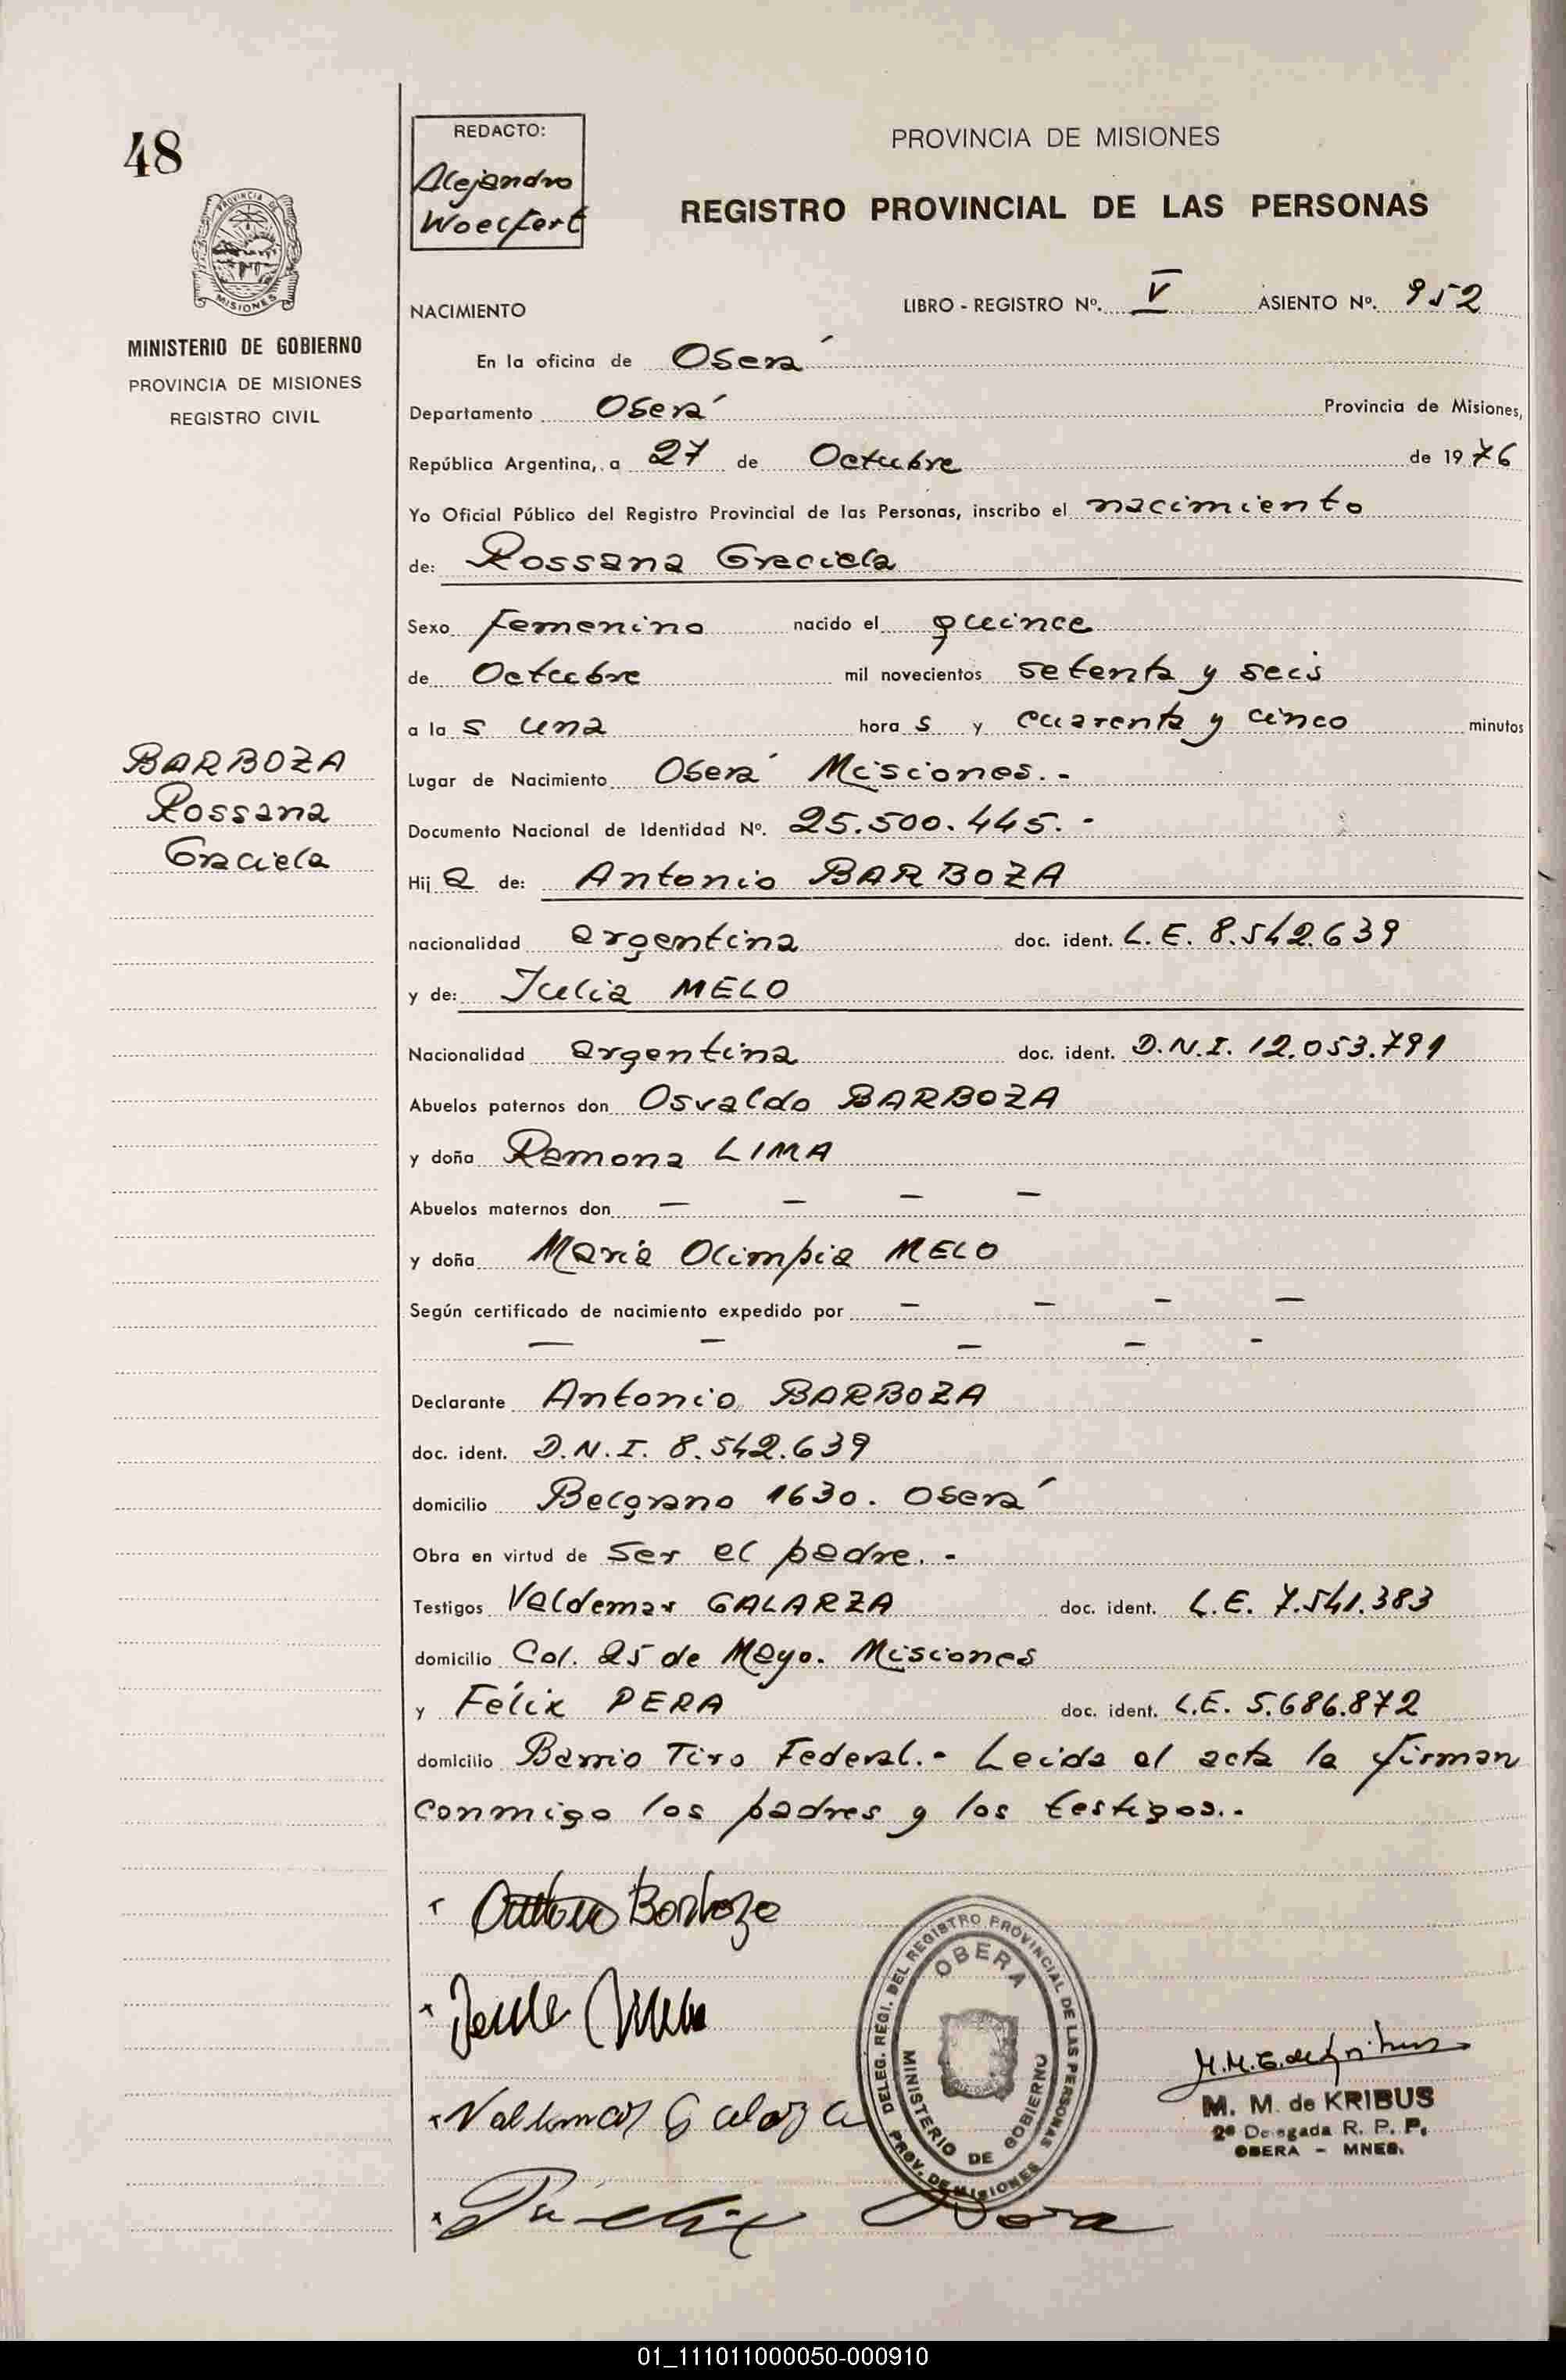 48
PROVINCIA DE
MISIONES
MINISTERIO DE GOBIERNO
PROVINCIA DE MISIONES
REGISTRO CIVIL
BARBOZA
Rossana
Graciela
REDACTO:
Alejandro
Woelfert
PROVINCIA DE MISIONES
REGISTRO PROVINCIAL DE LAS PERSONAS
NACIMIENTO LIBRO - REGISTRO Nº. V ASIENTO Nº. 952
En la oficina de Oberá
Departamento Oberá Provincia de Misiones,
República Argentina, a 27 de Octubre de 1976
Yo Oficial Público del Registro Provincial de las Personas, inscribo el nacimiento
de: Rossana Graciela
Sexo femenino nacido el quince
de Octubre mil novecientos setenta y seis
a la s una hora s y cuarenta y cinco minutos
Lugar de Nacimiento Oberá Misiones.-
Documento Nacional de Identidad Nº. 25.500.445.-
Hij a de: Antonio BARBOZA
nacionalidad argentina doc. ident. L.E. 8.542.639
y de: Julia MELO
Nacionalidad argentina doc. ident. D.N.I. 12.053.791
Abuelos paternos don Osvaldo BARBOZA
y doña Ramona LIMA
Abuelos maternos don — — — —
y doña María Olimpia MELO
Según certificado de nacimiento expedido por — — — —
— — — — -
Declarante Antonio BARBOZA
doc. ident. D.N.I. 8.542.639
domicilio Belgrano 1630. Oberá
Obra en virtud de ser el padre.-
Testigos Valdemar GALARZA doc. ident. L.E. 7.541.383
domicilio Col. 25 de Mayo. Misiones
y Félix PERA doc. ident. L.E. 5.686.872
domicilio Barrio Tiro Federal.- Leida el acta la firman
conmigo los padres y los testigos.-
Antonio Barboza
Valdemar Galarza
DELEG. REGI. DEL REGISTRO PROVINCIAL DE LAS PERSONAS
OBERA
MINISTERIO DE GOBIERNO
PROV. DE MISIONES
M. M. de KRIBUS
2ª Delegada R. P. P.
OBERA - MNES.
01_111011000050-000910